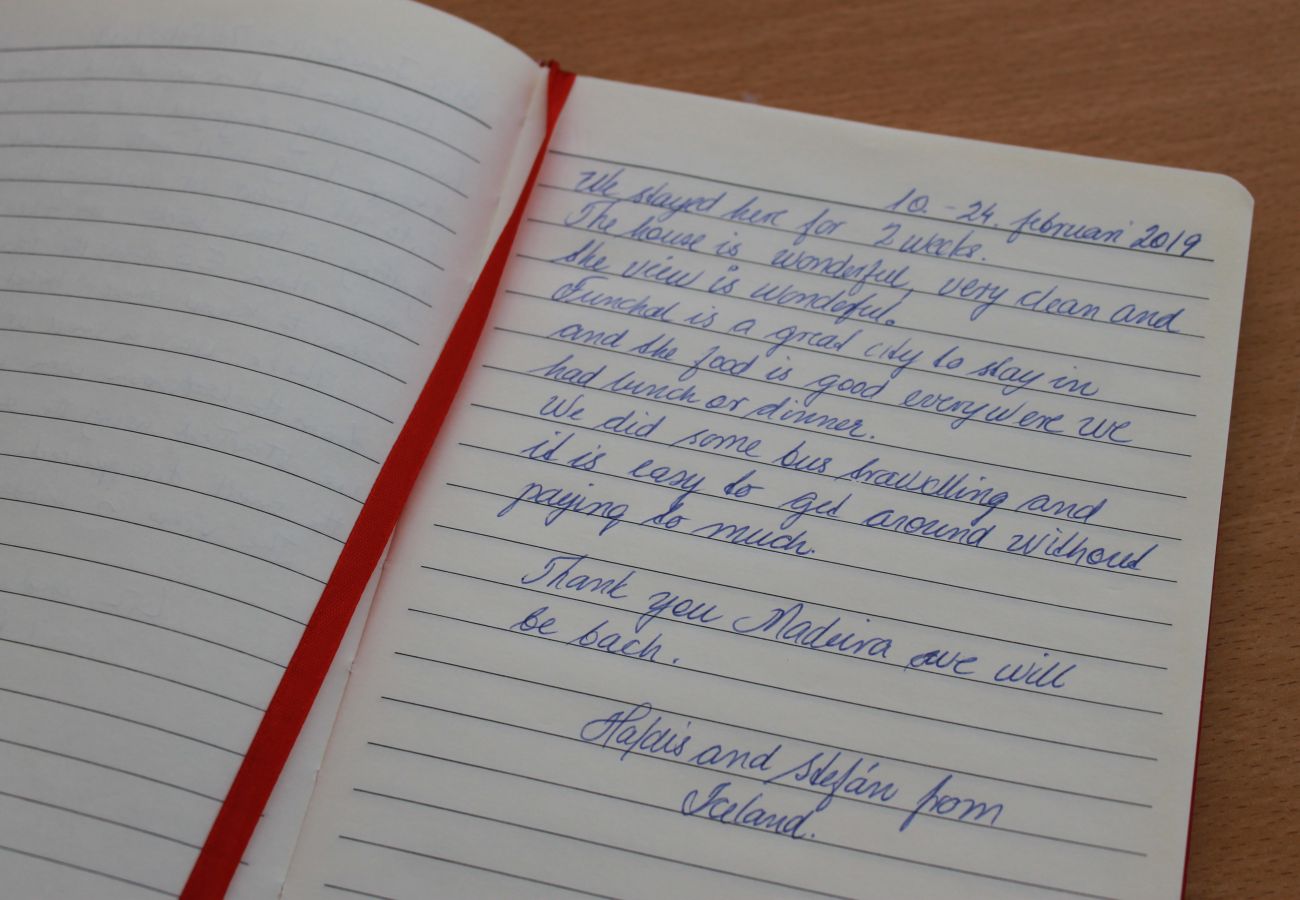 10. - 24. februari 2019
We stayed here for 2 weeks.
The house is wonderful, very clean and
the view is wondeful.
Funchal is a great city to stay in
and the food is good everywere we
had lunch or dinner.
We did some bus travelling and
it is easy to get around without
paying to much.
Thank you Madeira we will
be back.
Hafdis and Stefán from
Iceland.